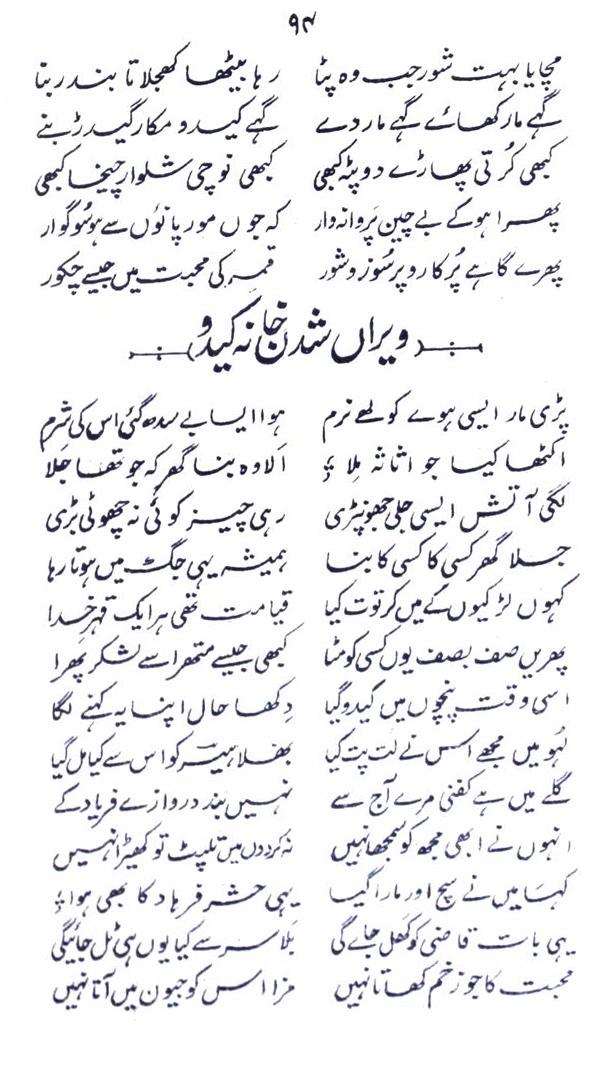 ۹۴
مچایا بہت شور جب وہ پٹا رہا بیٹھا کھجلاتا بندر بنا
گہے مار کھائے گہے مار دے گہے کیدو مکار گیدڑ بنے
کبھی کُرتی پھاڑے دوپٹہ کبھی کبھی نوچی شلوار چیخا کبھی
پھرا ہوکے بے چین پروانہ وار کہ جوں مور پانوں سے ہو سوگوار
پھرے گا ہے پُرکار و پرسوز و شور قمر کی محبت میں جیسے چکور
ویراں شدن خانہ کیدو
پڑی مار ایسی ہوے کولھے نرم ہوا ایسا بے سدھ گئی اس کی شرم
اکٹھا کیا جو اثاثہ مِلا اَلاوہ بنا گھر کہ جو تھا جلا
لگی آتش ایسی جلی جھونپڑی رہی چیز کوئی نہ چھوٹی بڑی
جلا گھر کسی کا کسی کا بنا ہمیشہ یہی جگ میں ہوتا رہا
کہوں لڑکیوں کے میں کرتوت کیا قیامت تھی ہر ایک قہرِ خدا
پھریں صف بصف یوں کسی کو مٹا کبھی جیسے متھرا سے لشکر پھرا
اسی وقت پنچوں میں کیدو گیا دِکھا حال اپنا یہ کہنے لگا
لہُو میں مجھے اس نے لت پت کیا بھلا ہیر کو اس سے کیا مل گیا
گلے میں ہے کفنی مرے آج سے نہیں بند دروازے فریاد کے
انہوں نے ابھی مجھ کو سمجھا نہیں نہ کردوں میں تلپٹ تو کھیڑا نہیں
کہا میں نے سچ اور مارا گیا یہی حشر فرہاد کا بھی ہوا
یہی بات قاضی کو کَھل جاے گی بَلا سر سے کیا یوں ہی ٹل جائیگی
محبت کا جو زخم کھاتا نہیں مزا اس کو جیون میں آتا نہیں